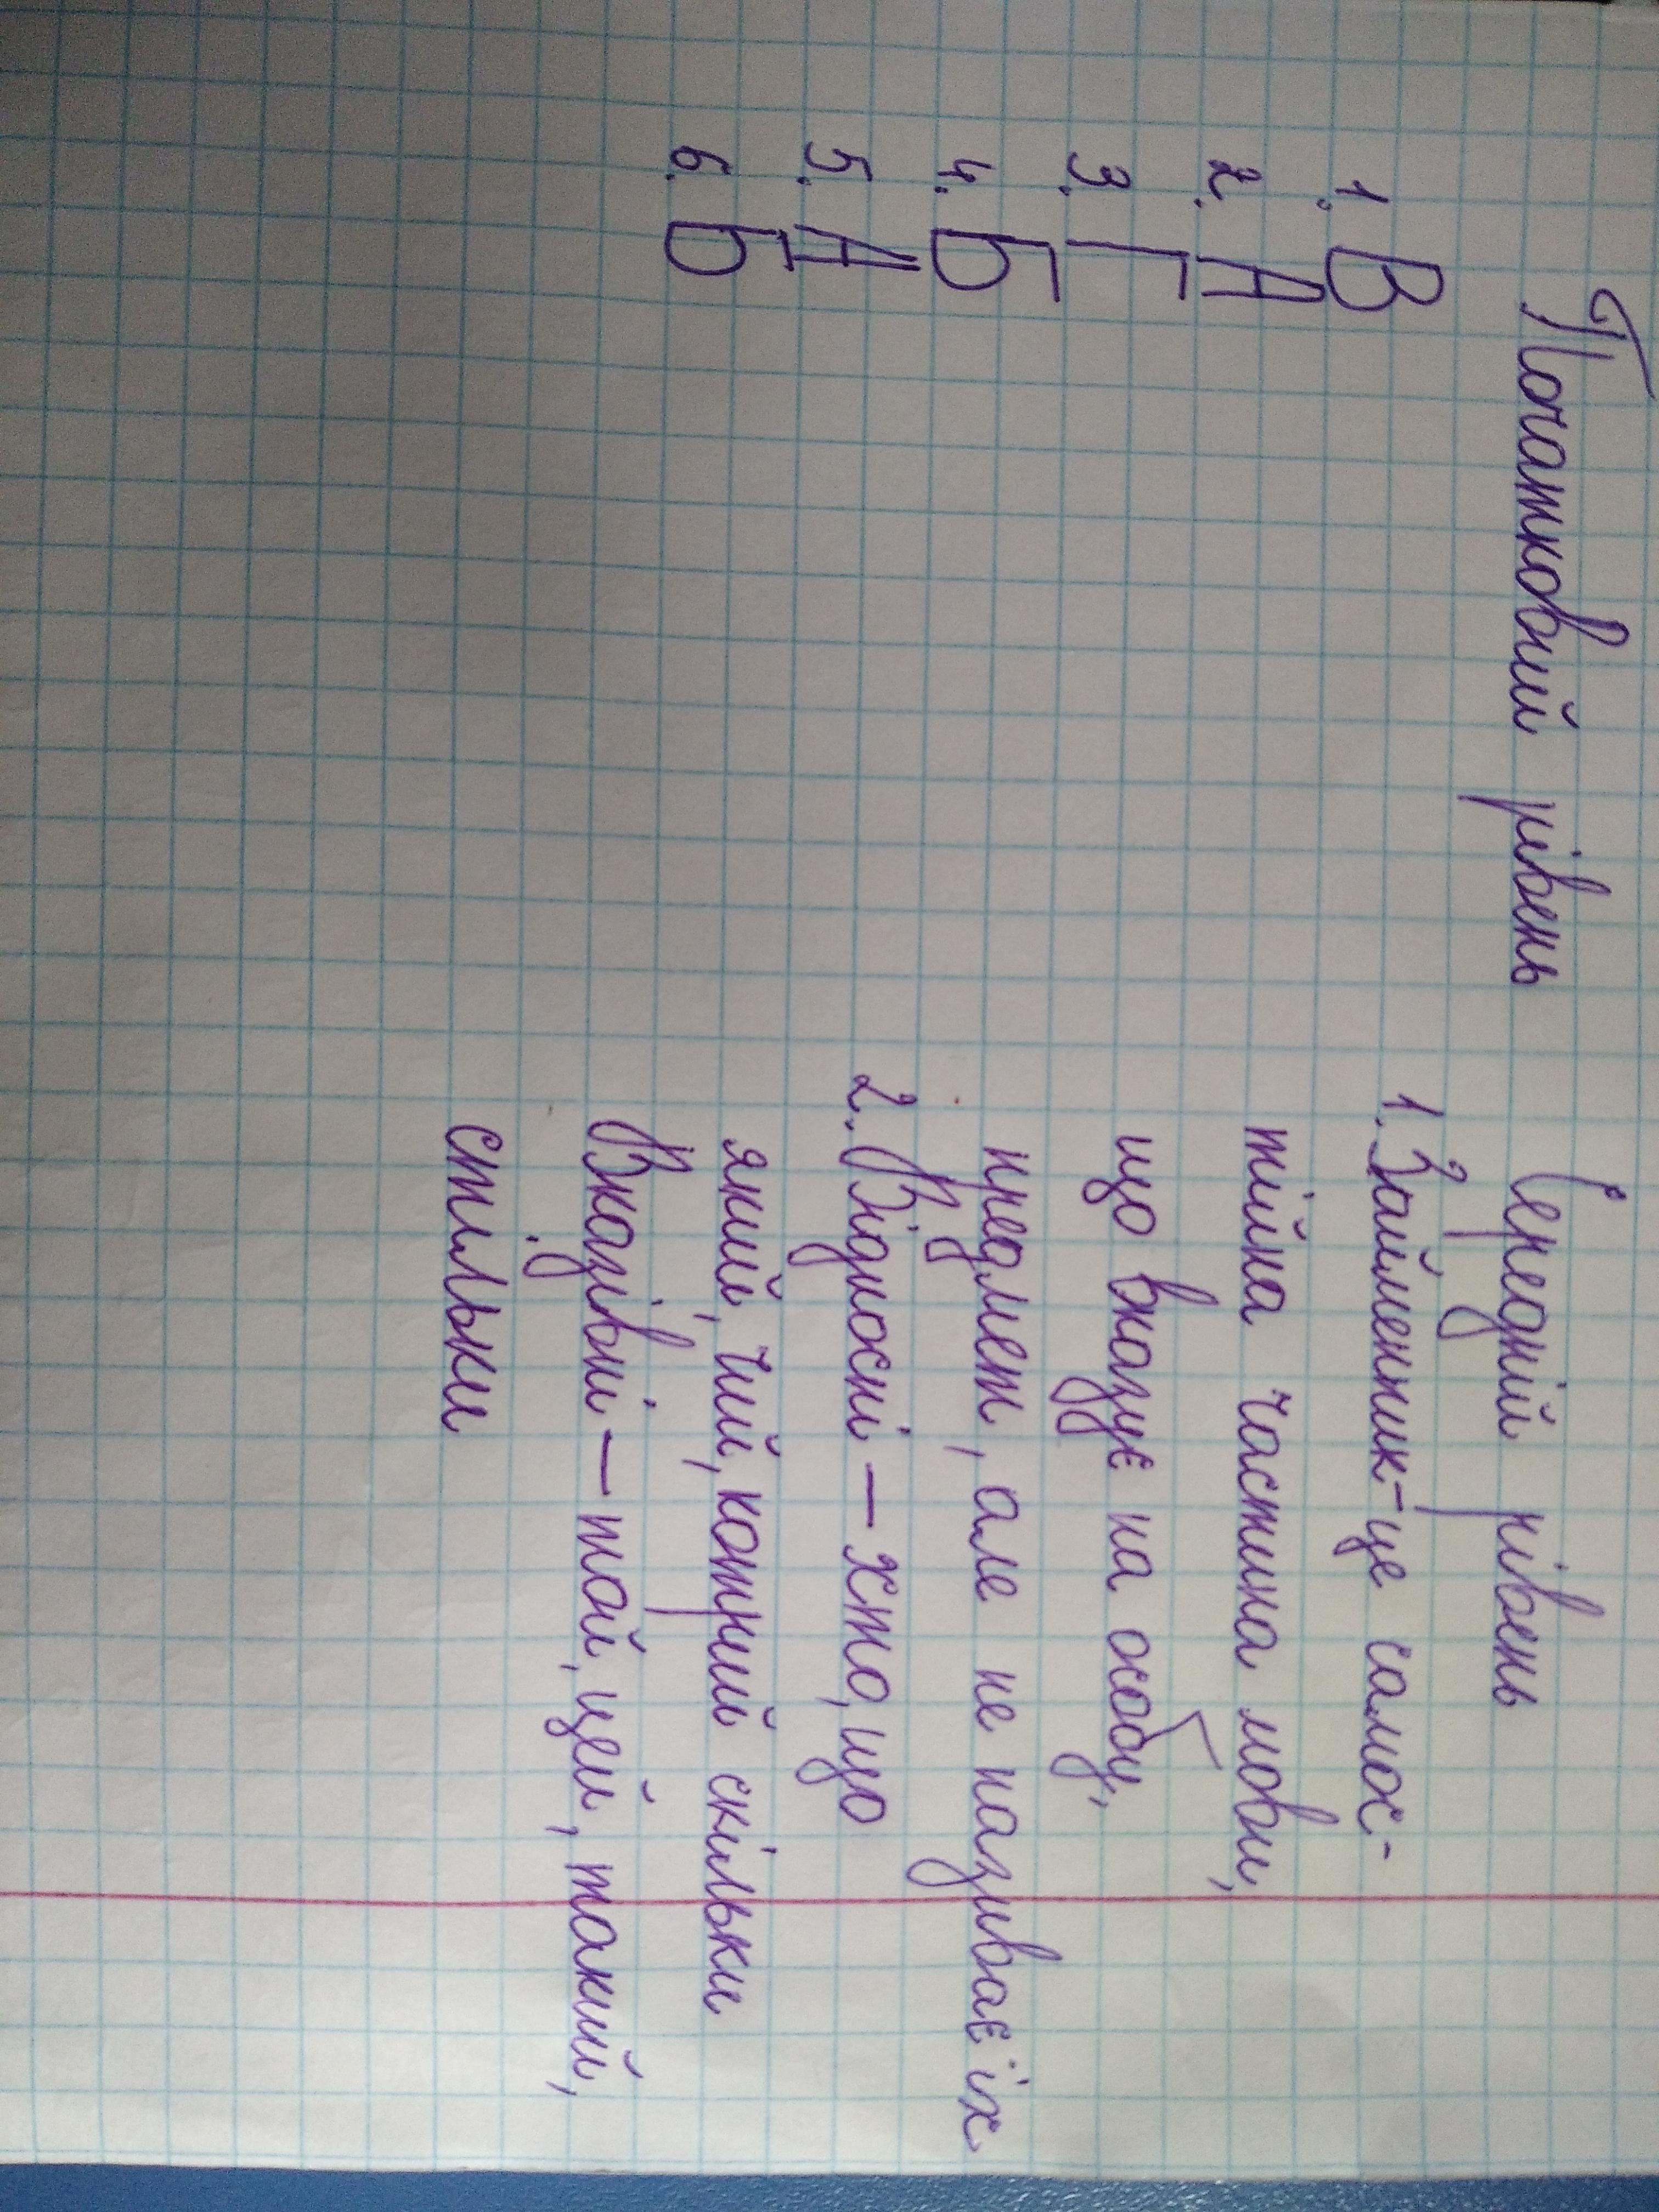 Початковий рівень
1. В
2. А
3. Г
4. Б
5. А
6. Б
Середній рівень
1. Займенник-це самос-
тійна частина мови,
що вказує на особу,
предмет, але не називає іх
2. Відносні – хто, що
який, чий, котрий скільки
Вказівні – той, цей, такий,
стільки